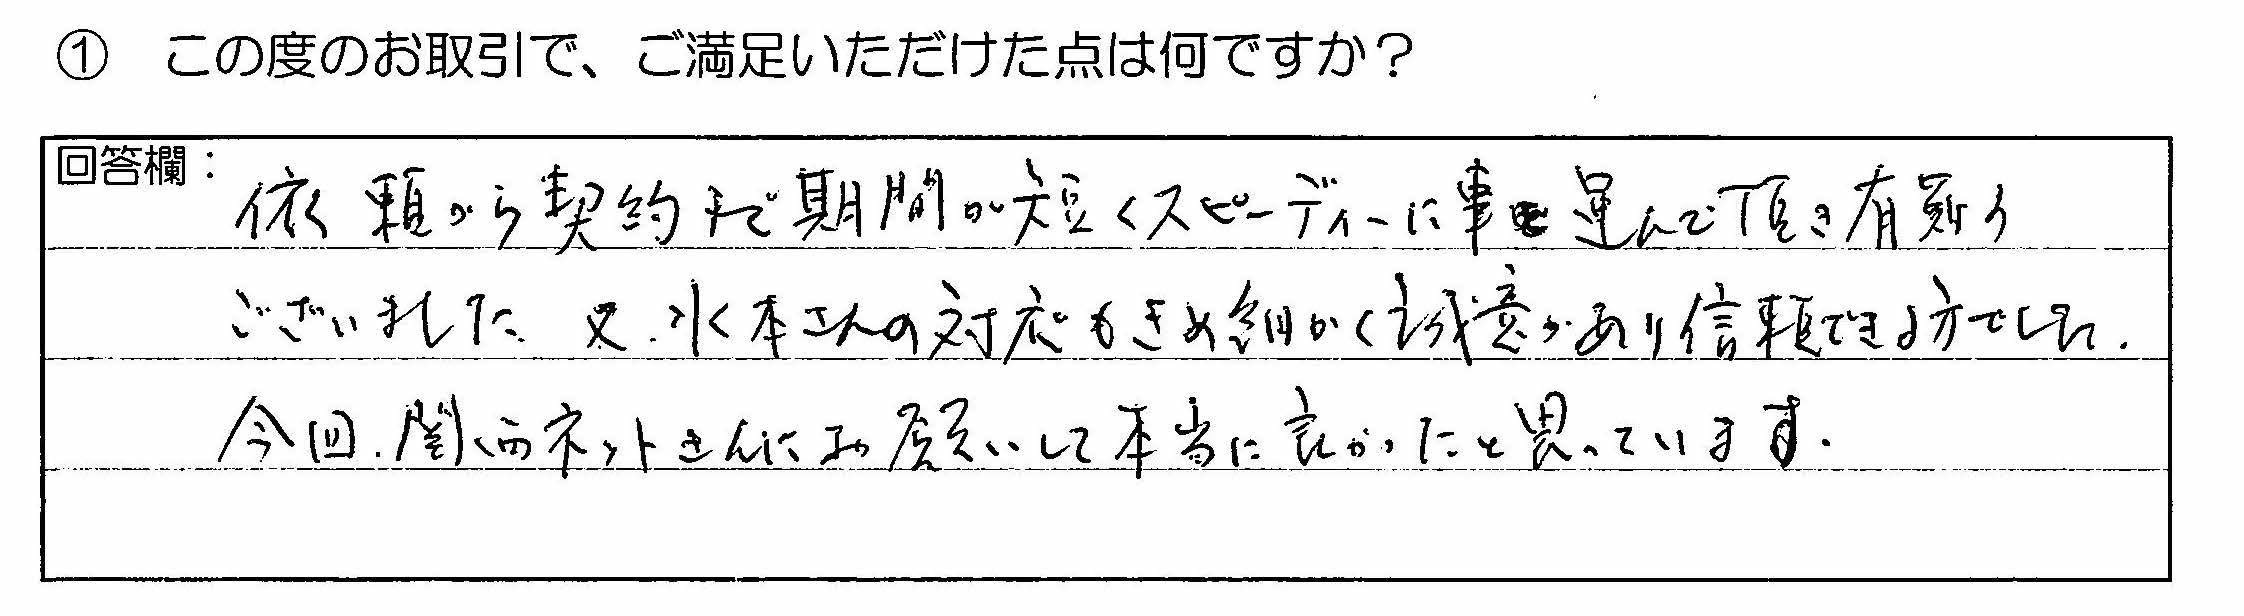 ① この度のお取引で、ご満足いただけた点は何ですか？
回答欄：
依頼から契約まで期間が短くスピーディーに事を運んで頂き有難う
ございました. 又.水本さんの対応もきめ細かく誠意があり信頼できる方でした.
今回.関西ネットさんにお願いして本当に良かったと思っています.